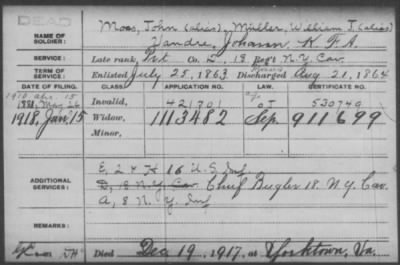 DEAD
Moas, John (alias), Müller, William J. (alias)
NAME OF SOLDIER: Vandre, Johann K. F. A.
SERVICE: Late rank, Pvt Co. L, 18 Reg't N.Y. Cav.
TERM OF SERVICE: Enlisted July 25, 1863 Discharged Aug 21, 1864
DATE OF FILING. CLASS. APPLICATION NO. LAW. CERTIFICATE NO.
1910 Apr. 15
1881, May 26 Invalid, 421701 520749
1918, Jan. 15 Widow, 1113482 Sep. 911699
Minor,
E, 2 & H 16 U.S. Inf
ADDITIONAL SERVICES: D, 18 N.Y. Cav. Chief Bugler 18. N.Y. Cav.
A, 8 N.Y. Inf
REMARKS:
Died Dec 19, 1917, at Yorktown, Va.